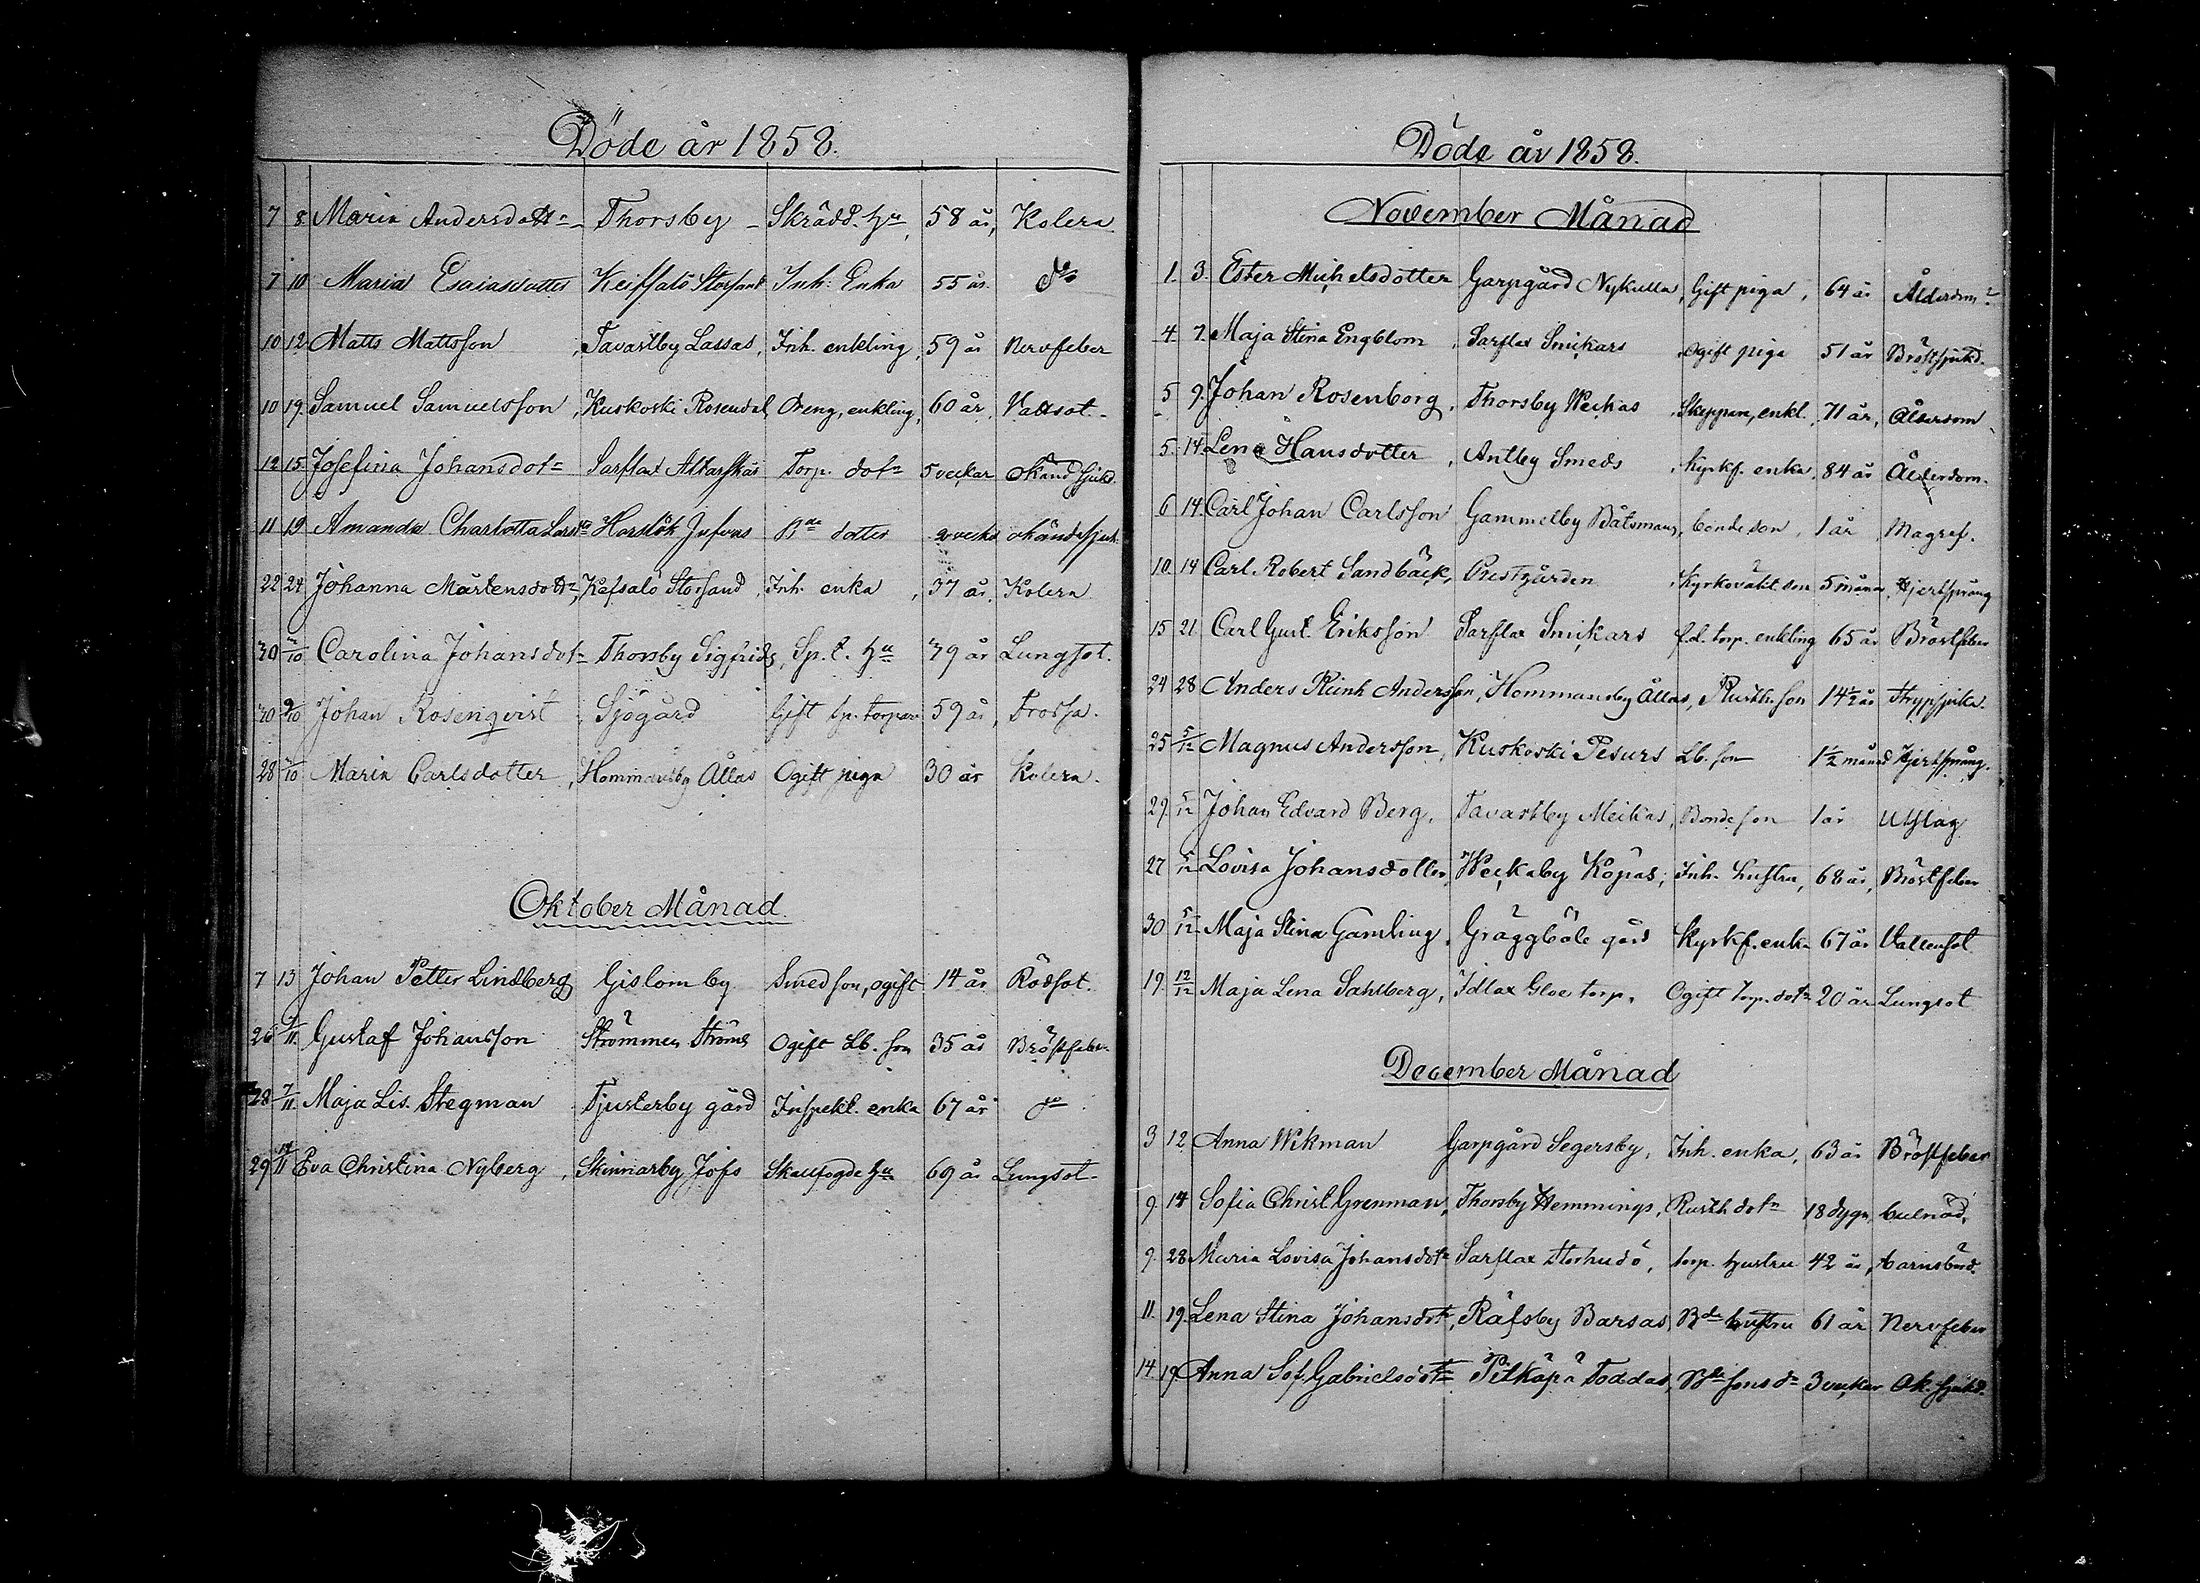 Döde år 1858.
7 8 Maria Andersdottr Thorsby Skrädd. hu 58 år, Kolera
7 10 Maria Esaiasdotter Keiffalö Storsand Inh. Enka 55 år. do
10 12 Matts Mattsson Tavastby Lassas, Inh. enkling 59 år Nervfeber
10 19 Samuel Samuelsson, Kuskoski Rosendal, Dreng, enkling, 60 år, Vattsot.
12 15 Josefina Johansdotr Sarflax Altarskär Torp. dotr 5 veckar okänd sjukd.
11 19 Amanda Charlotta Larsdr Horslök Bde dotter 2 veckr okänd sjukd.
22 24 Johanna Mårtensdottr, Kefsalö Storsand, Inh. enka, 37 år, Kolera
30 /10 Carolina Johansdotr Thorsby Sigfrids, Sp. t. hu 39 år Lungsot.
30 9/10 Johan Rosenqvist Sjögård Gift sp. torpare 59 år, Frossa.
28 /10 Maria Carlsdotter, Hommansby Ållas Ogift piga 30 år Kolera.
Oktober Månad
7 13 Johan Petter Lindberg Gislom by Smed son, ogift 14 år Rödsot.
26 /11 Gustaf Johansson Strömmen Ströms Ogift Lb. son 35 år Bröstfeber
28 7/11 Maja Lis. Stegman Tjusterby gård Inspekt. enka 67 år do
29 14/11 Eva Christina Nyberg, Skinnarby Jofs Skallfogde hu 69 år Lungsot.
Döde år 1858.
November Månad
1. 3. Ester Michelsdotter Garpgård Nykulla, Gift piga, 64 år Ålderdom
4 7. Maja Stina Engblom, Sarflax Smikars, ogift piga 51 år Bröstsjukd.
5 9. Johan Rosenborg, Thorsby Weckas, Skeppare, enkl., 71 år, Ålderdom
5. 14 Lena Hansdotter, Antby Smeds, Kyrkf. enka, 84 år Ålderdom.
6 14 Carl Johan Carlsson Gammelby Båtsmans, bondeson, 1 år, Magref.
10 14 Carl Robert Sandbäck, Prestgården, Kyrkovakt. son 5 månar, Hjertsprång
15 21 Carl Gust. Eriksson Sarflax Smikars f.d. torp. enkling 65 år Bröstfeber
24 28 Anders Reinh Andersson, Hommansby Ållas, Rusth. son 14½ år Strypsjuka.
25 5/12 Magnus Andersson, Kuskoski Pesurs Lb. son 1½ månad Hjertsprång.
29. 5/12 Johan Edvard Berg, Tavastby Meikas, Bonde son 1 år Utslag
27 5/12 Lovisa Johansdotter, Weckaby Kopas, Inh. hustru, 68 år, Bröstfeber
30 5/12 Maja Stina Gamling, Gräggböle gård Kyrkf. enka 67 år Vattensot
19. 12/12 Maja Lena Sahlberg, Idlax Gloe torp, Ogift Torp. dotr 20 år Lungsot
December Månad
3 12 Anna Wikman Garpgård Segersby, Inh. enka, 63 år Bröstfeber
9. 14 Sofia Christ. Grenman, Thorsby Hemmings, Rusth dotr 18 dygn,
9. 28 Maria Lovisa Johansdotr Sarflax Storhudö, torp. hustru 42 år, barnsbörd.
11. 19. Lena Stina Johansdotr, Räfsby Barsas, Bde hustru 61 år Nervfeber
14 19 Anna Sof. Gabrielsdotr Pitkäpä Toddas, Bde sons dr 3 veckor Ok. sjukd.